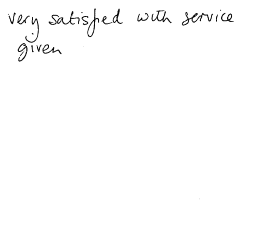 very satisfied with service
given